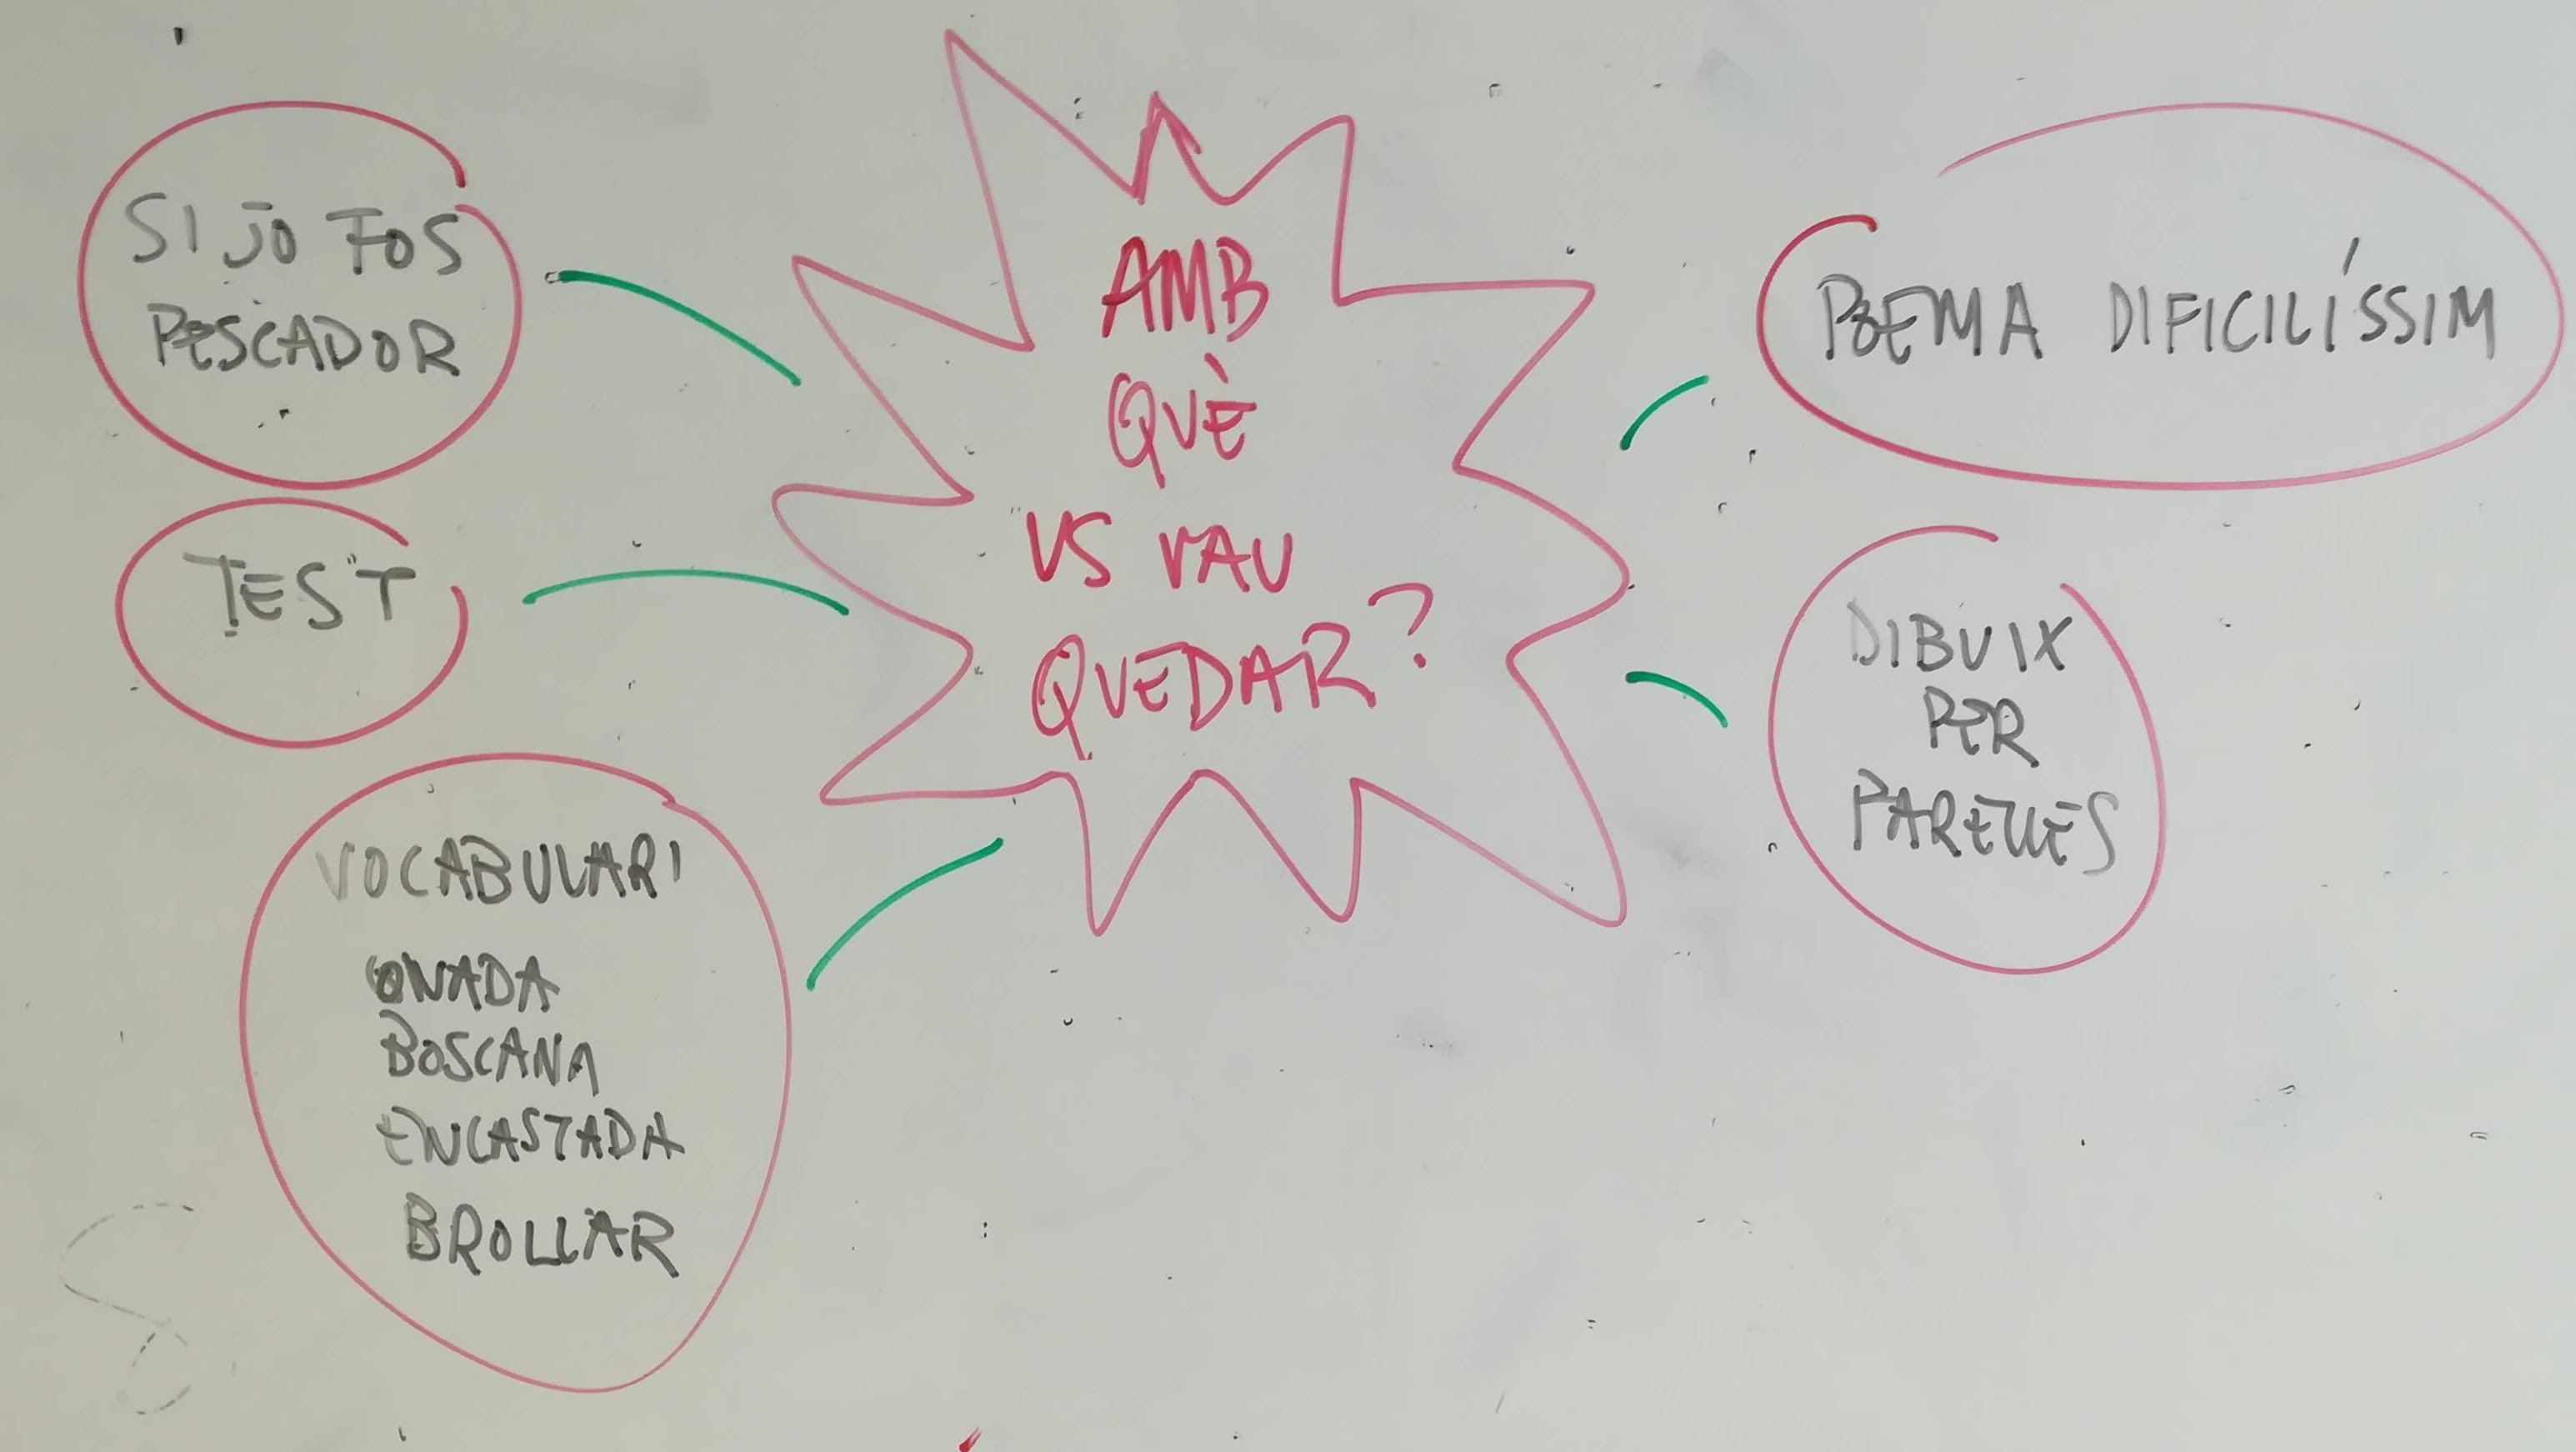 SI JO FOS
PESCADOR
TEST
VOCABULARI
ONADA
BOSCANA
ENCASTADA
BROLLAR
AMB
QUÈ
US VAU
QUEDAR?
POEMA DIFICILÍSSIM
DIBUIX
PER
PARELLES